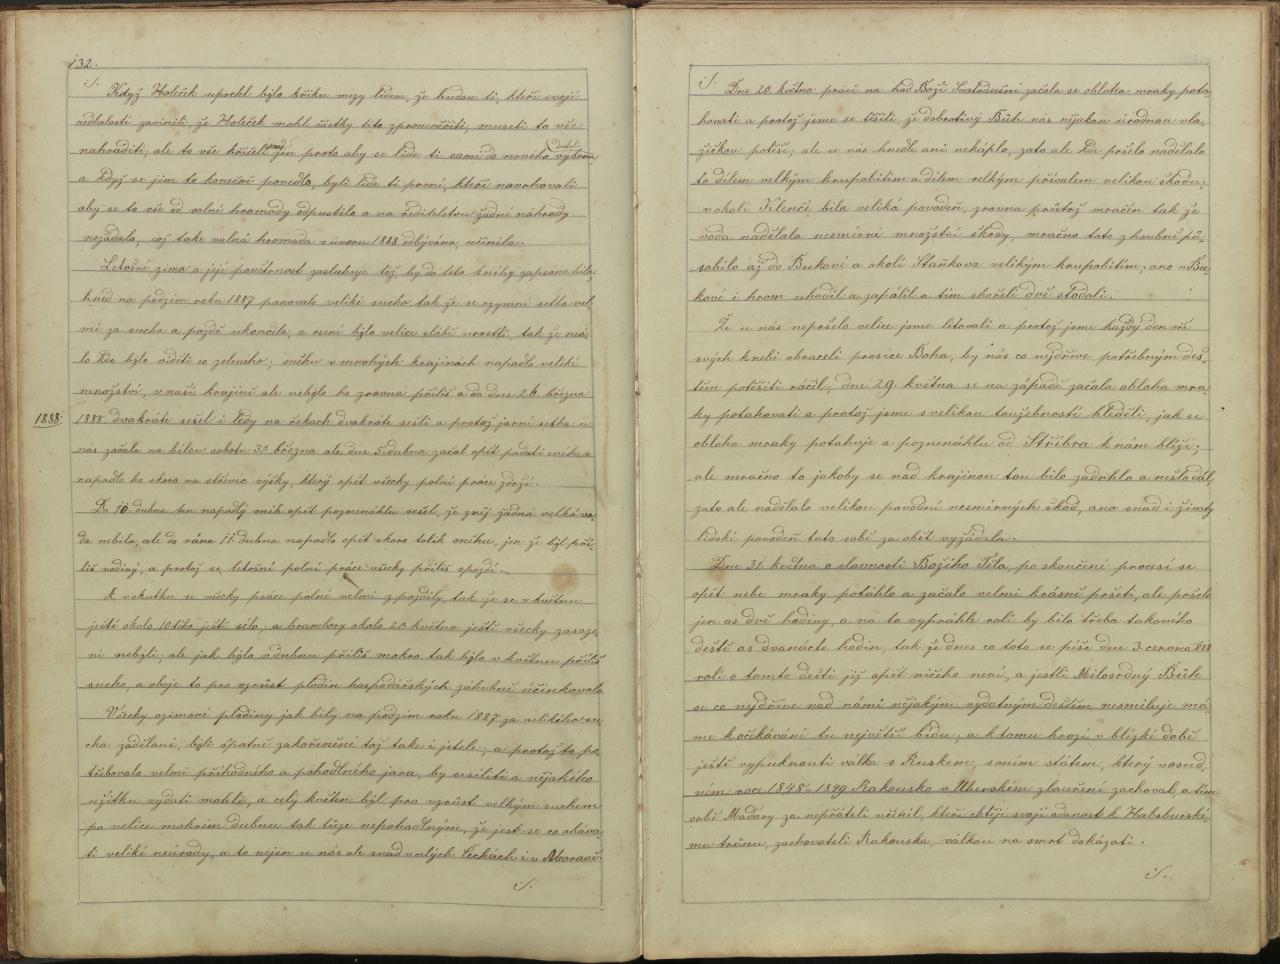 132.
./.
Když Holeček uprchl bylo křiku mezy lidem, že budou ti, kteří svojí
nedbalostí zavinili, že Holeček mohl částky tito zpronevěřiti, museti to vše
nahraditi; ale to vše křičeli snad jen proto aby se lide ti sami do noveho vyboru dostali,
a když se jim to konečně povedlo, byli lide ti první, kteří navrhovali
aby se to vše od valní hromady odpustilo a na ředitelstvu žádné náhrady
nežádalo, což take valná hromada v únoru 1888 odbývána, učinila.
Letošní zima a její povětrnost zasluhuje též, by do této knihy zapsána bila,
hned na podzim roku 1887 panovalo veliké sucho tak že se ozymní setba vel-
mi za sucha a pozdě ukončila, a osení bylo velice slábě vzrostlé, tak že má-
lo kde bylo viděti co zeleného; sněhu v mnohých krajinách napadlo veliké
množství, v naší krajině ale nebylo ho zrovna příliš a do dne 26. března
1888
1888 dvakráte sešel i ledy na řekách dvakráte sešli a protož jarní setba u
nás začala na bílou sobotu 31. března ale dne 5 dubna začal opět padati sníh a
napadlo ho skoro na střevíc výšky, který opět všecky polní práce zdrží.
Do 10. dubna ten napadlý sníh opět poznenáhlu sešel, že z něj žádná velká vo-
da nebila, ale do rána 11. dubna napadlo opět skoro tolik sněhu, jen že byl pří-
liš vodiný, a protož se letošní polní práce všecky příliš spozdí.
A vskutku se všecky práce polné velmi zpozdily, tak že se v květnu
ještě okolo 10tého ještě sélo; a brambory okolo 20. května ještě všecky zasaze-
ní nebyli; ale jak bylo v dubnu příliš mokro tak bylo v květnu příliš
sucho, a oboje to pro vzrůst plodin hospodářských záhubně účinkovalo.
Všecky ozimové plodiny jak bily na podzim roku 1887 za velikého su-
cha zdělaní, byli špatně zakořenění tož take i jetele; a protož to po-
třebovalo velmi příhodného a pohodlného jara, by sesílíti a nějakého
užitku vydati mohli, a celý květen byl pro vzrůst velkým suchem
po velice mokrém dubnu tak tůze nepohodlným, že jest se co obáva-
ti veliké neúrody, a to nejen u nás ale snad v celých Čechách i v Moravě.
./.
./.
Dne 20. května právě na hod Boží Svatodušní začala se obloha mraky pota-
hovati a protož jsme se těšili, že dobrotivý Bůh nás nějakou úrodnou vla-
žičkou potěší; ale u nás hnedle ani nekáplo, zato ale kde pršelo nadělalo
to dílem velkým krupobitím a dílem velkým přívalem velikou škodu;
v okolí Klenčí bila veliká povodeň, zrovna průtrž mračen tak že
voda nadělala nesmírné množství škody, mračno toto zhoubně pů-
sobilo až do Bukové a okolí Staňkova velikým krupobitím; ano v Bu-
kové i hrom uhodil a zapálil a tím shořeli dvě stodoli.
Že u nás nepršelo velice jsme litovali a protož jsme každý den oči
svých k nebi obraceli prosíce Boha, by nás co nejdříve potřebným deš-
těm potěšiti ráčil; dne 29. května se na západě začala obloha mra-
ky potahovati a protož jsme s velikou toužebností hleděli, jak se
obloha mraky potahuje a poznenáhlu od Stříbra k nám blíží;
ale mračno to jakoby se nad krajinou tou bilo zadrhlo a nešlo dál,
zato ale nadělalo velikou povodní nesmírných škod, ano snad i životy
lidské povodeň tato sobě za oběť vyžádala.
Dne 31. května o slavnosti Božího Těla, po skončené procesí se
opět nebe mraky potáhlo a začalo velmi krásně pršeti, ale pršelo
jen as dvě hodiny, a na to vyprahlé rolí by bilo třeba takového
deště as dvanácte hodin, tak že dnes co toto se píše dne 3. června 1888
rolí o tomto dešti již opět ničeho neví, a jestli Milosrdný Bůh
se co nejdříve nad námi nějakým vydatným deštěm nesmiluje má-
me k očekávání tu největší bídu; a k tomu hrozí v blízké době
ještě vypuknouti válka s Ruskem, s oním státem, který v osud-
ném roce 1848 a 1849 Rakousko v Uherském zbouření zachoval, a tím
sobě Maďary za nepřáteli učinil, kteří chtějí svojí oddanost k Habsburské-
mu trůnu, zachovateli Rakouska, válkou na smrt dokázati.
./.